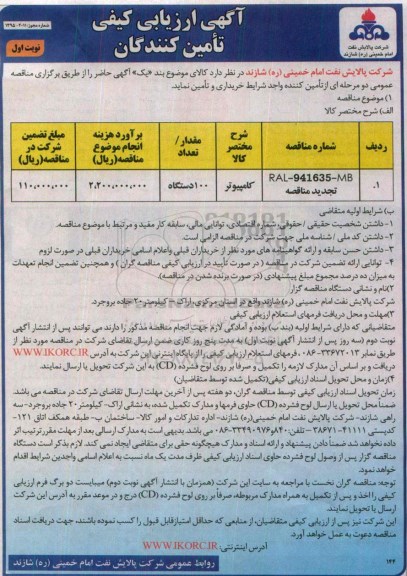 آگهی ارزیابی کیفی
تأمین کنندگان
نوبت اول
شرکت پالایش نفت
امام خمینی (ره) شازند
شرکت پالایش نفت امام خمینی (ره) شازند در نظر دارد کالای موضوع بند «یک» آگهی حاضر را از طریق برگزاری مناقصه
عمومی دو مرحله ای از تأمین کننده واجد شرایط خریداری و تأمین نماید.
۱) موضوع مناقصه
الف) شرح مختصر کالا
ردیف شماره مناقصه شرح مختصر کالا مقدار / تعداد برآورد هزینه انجام موضوع مناقصه(ریال) مبلغ تضمین شرکت در مناقصه(ریال)
۱. RAL-941635-MB تجدید مناقصه کامپیوتر ۱۰۰دستگاه ۲,۲۰۰,۰۰۰,۰۰۰ ۱۱۰,۰۰۰,۰۰۰
ب) شرایط اولیه متقاضی
۱- داشتن شخصیت حقیقی / حقوقی، شماره اقتصادی، توانایی مالی، سابقه کار مفید و مرتبط با موضوع مناقصه.
۲- داشتن کد ملی / شناسه ملی جهت شرکت در مناقصه الزامی است.
۳- داشتن حسن سابقه و ارائه گواهینامه های مورد نظر از خریداران قبلی و اعلام اسامی خریداران قبلی در صورت لزوم
۴- توانایی ارائه تضمین شرکت در مناقصه ( در صورت تأیید در ارزیابی کیفی مناقصه گران ) و همچنین تضمین انجام تعهدات
به میزان ده درصد مجموع مبلغ پیشنهادی. (در صورت برنده شدن در مناقصه).
۲) نام و نشانی دستگاه مناقصه گزار
شرکت پالایش نفت امام خمینی (ره) شازند واقع در استان مرکزی، اراک – کیلومتر ۲۰ جاده بروجرد.
۳) مهلت و محل دریافت فرمهای استعلام ارزیابی کیفی
متقاضیانی که دارای شرایط اولیه (بند ب) بوده و آمادگی لازم جهت انجام مناقصه مذکور را دارند می توانند پس از انتشار آگهی
نوبت دوم (سه روز پس از انتشار آگهی نوبت اول) به مدت پنج روز کاری ضمن ارسال تقاضای شرکت در مناقصه مورد نظر از
طریق نمابر ۳۳۶۷۲۰۱۳-۰۸۶، فرمهای استعلام ارزیابی کیفی را از پایگاه اینترنتی این شرکت به آدرس WWW.IKORC.IR
دریافت و بر اساس آن مدارک لازمه را تکمیل و صرفاً بر روی لوح فشرده (CD) به این شرکت تحویل یا ارسال نمایند.
۴) زمان و محل تحویل اسناد ارزیابی کیفی (تکمیل شده توسط متقاضیان)
زمان تحویل اسناد ارزیابی کیفی توسط مناقصه گران، دو هفته پس از آخرین مهلت ارسال تقاضای شرکت در مناقصه می باشد.
ضمناً محل تحویل یا ارسال لوح فشرده (CD) حاوی فرمها و مدارک تکمیل شده، به نشانی اراک- کیلومتر ۲۰ جاده بروجرد- سه
راهی شازند- شرکت پالایش نفت امام خمینی(ره) شازند- اداره تدارکات و امور کالا- ساختمان پ- طبقه همکف اتاق ۱۲۱-
داده نخواهد شد ضمناً دادن پیشنهاد و ارائه اسناد و مدارک هیچگونه حقی برای متقاضی ایجاد نمی کند. لازم بذکر است دستگاه
مناقصه گزار پس از وصول لوح فشرده حاوی اسناد ارزیابی کیفی ظرف مدت یک ماه نسبت به اعلام اسامی واجدین شرایط اقدام
خواهد نمود.
توجه: مناقصه گران نخست با مراجعه به سایت این شرکت (همزمان با انتشار آگهی نوبت دوم) میبایست دو برگ فرم ارزیابی
کیفی را اخذ و پس از تکمیل به همراه مدارک مربوطه، صرفاً بر روی لوح فشرده (CD) درج و در موعد مقرر به آدرس این شرکت
ارسال یا تحویل نمایند.
این شرکت نیز پس از ارزیابی کیفی متقاضیان، از منابعی که حداقل امتیاز قابل قبول را کسب نموده باشند، جهت دریافت اسناد
مناقصه دعوت به عمل خواهد آورد.
آدرس اینترنتی: WWW.IKORC.IR
روابط عمومی شرکت پالایش نفت امام خمینی (ره) شازند
۱۴۴